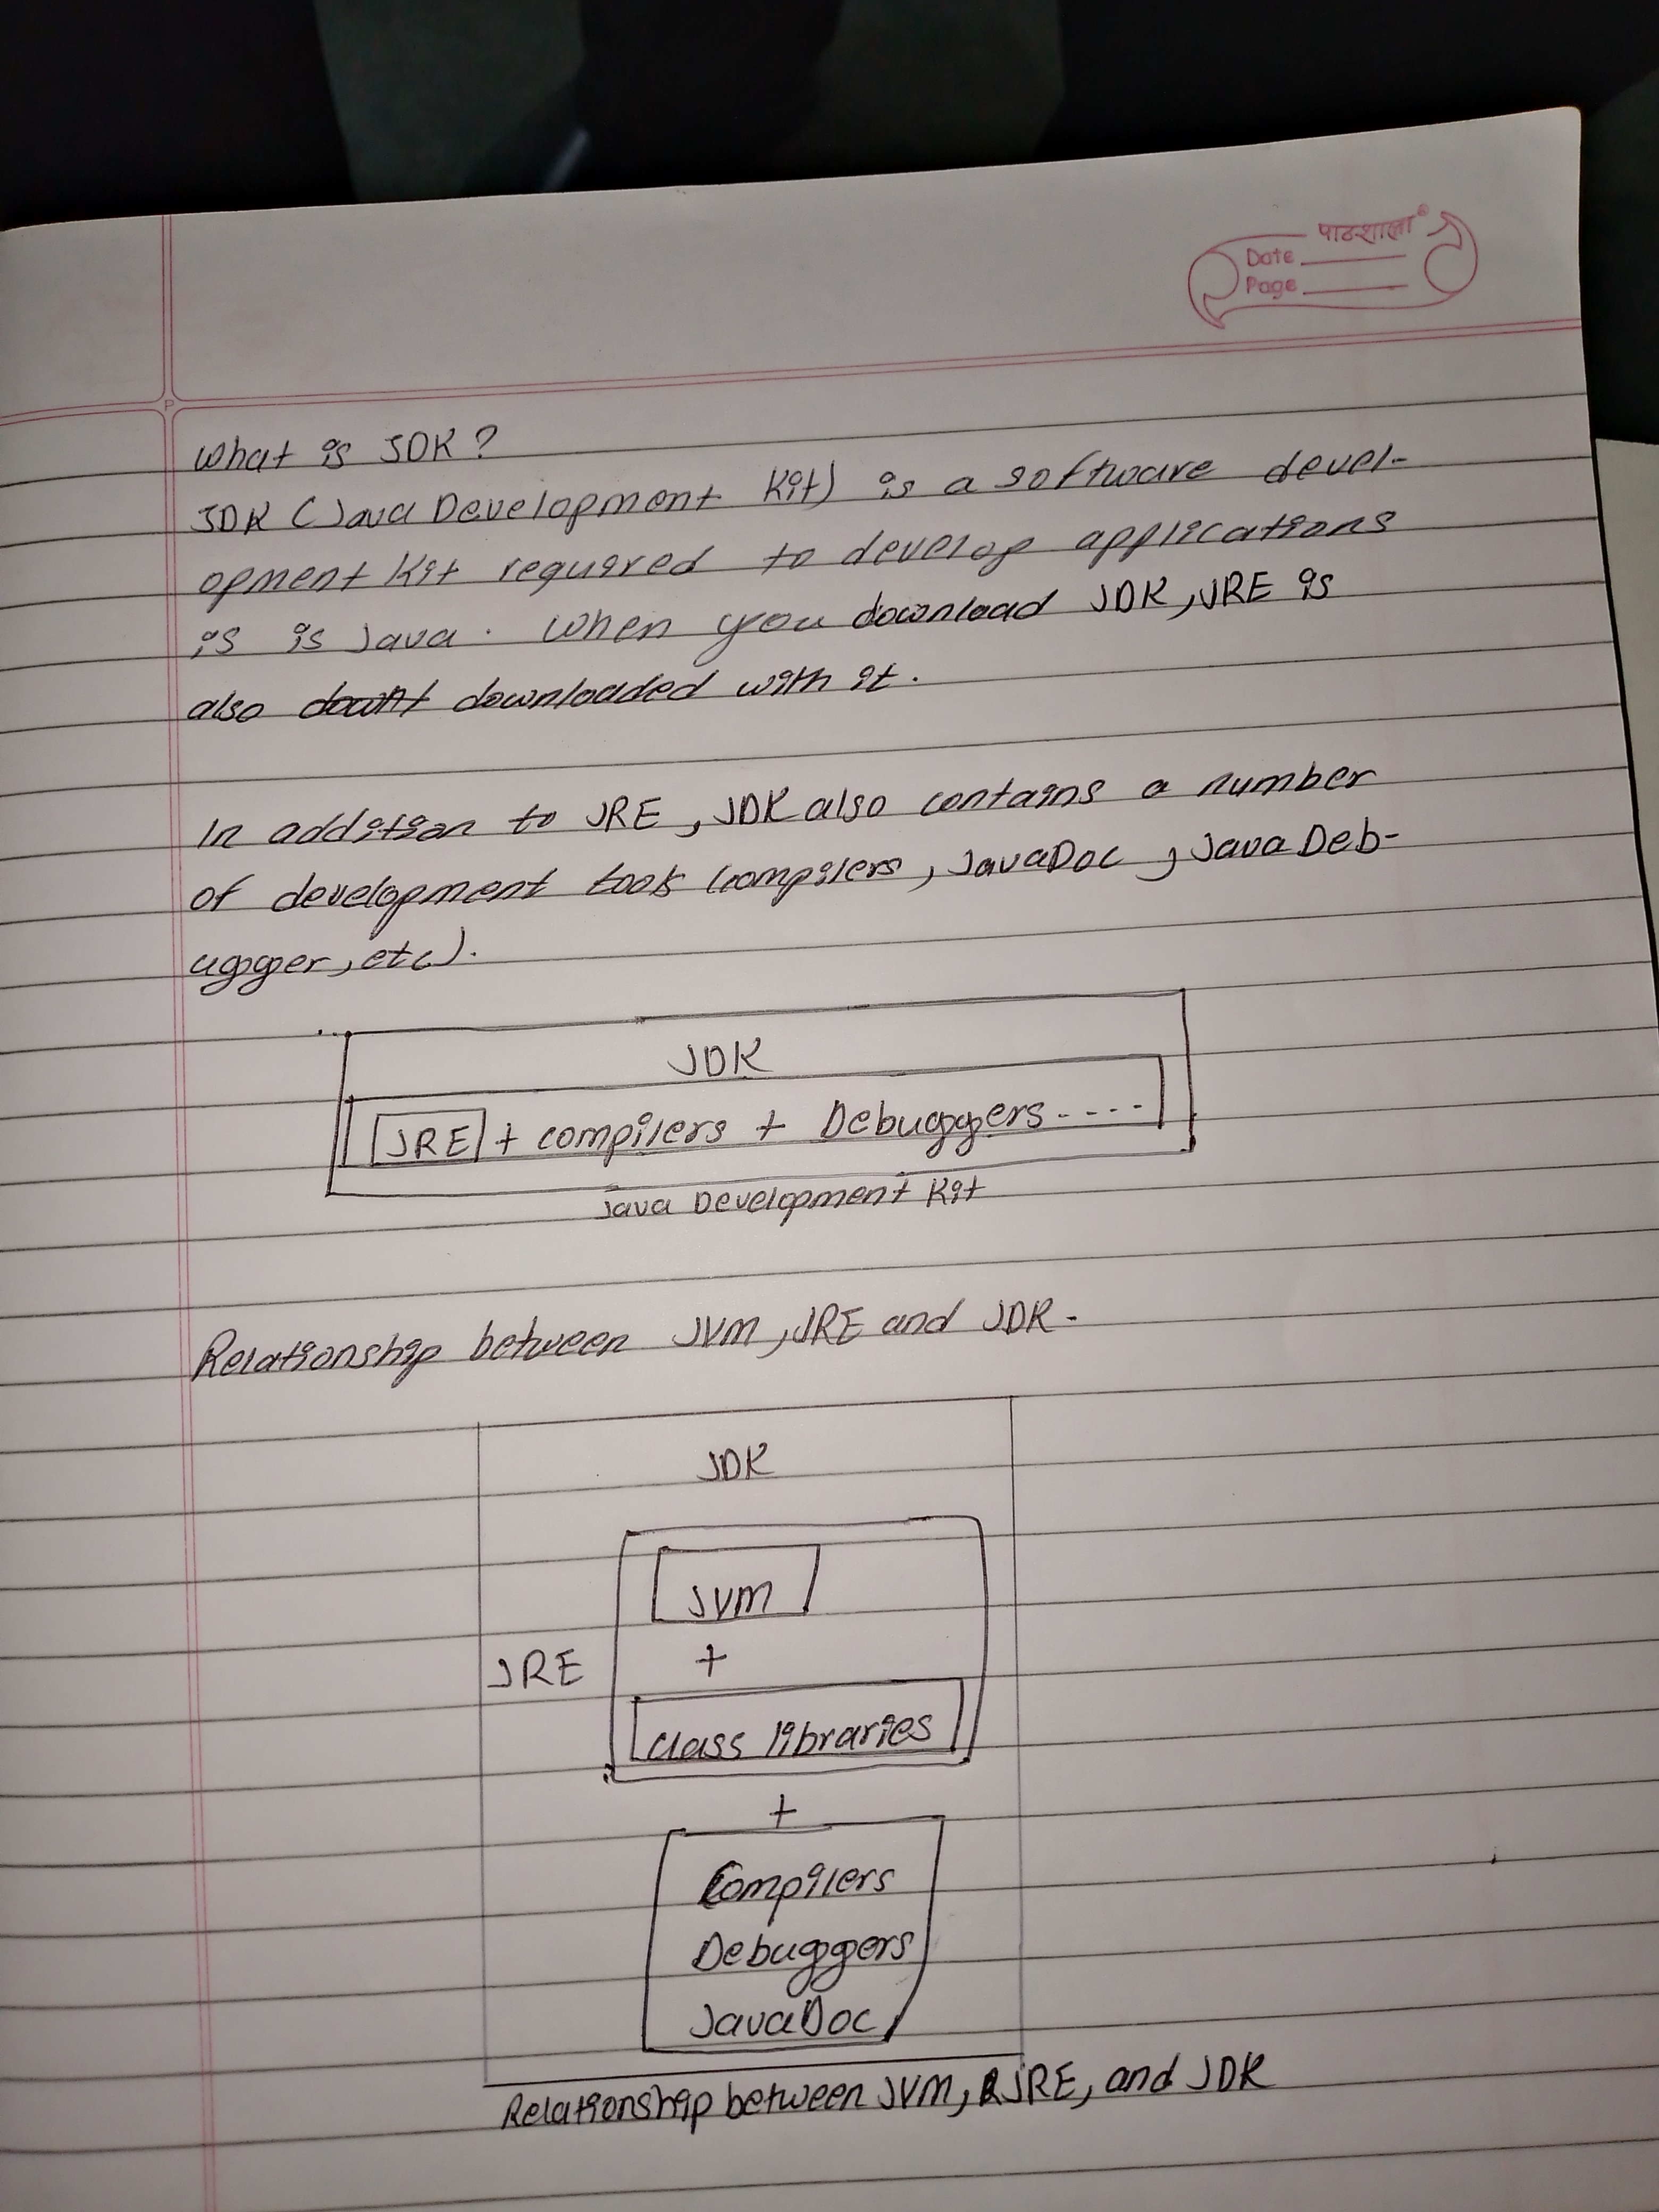 पाठशाला®
Date
Page
P
What is JDK?
JDK (Java Development Kit) is a software devel-
opment Kit required to develop applications
is is Java. When you download JDK, JRE is
also downloaded with it.
In addition to JRE, JDK also contains a number
of development tools (compilers, JavaDoc, Java Deb-
ugger, etc).
JDK
JRE + compilers + Debuggers....
Java Development Kit
Relationship between JVM, JRE and JDK-
JDK
JVM
JRE +
class libraries
+
Compilers
Debuggers
JavaDoc
Relationship between JVM, JRE, and JDK